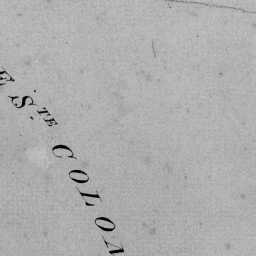 E S.TE COLOA